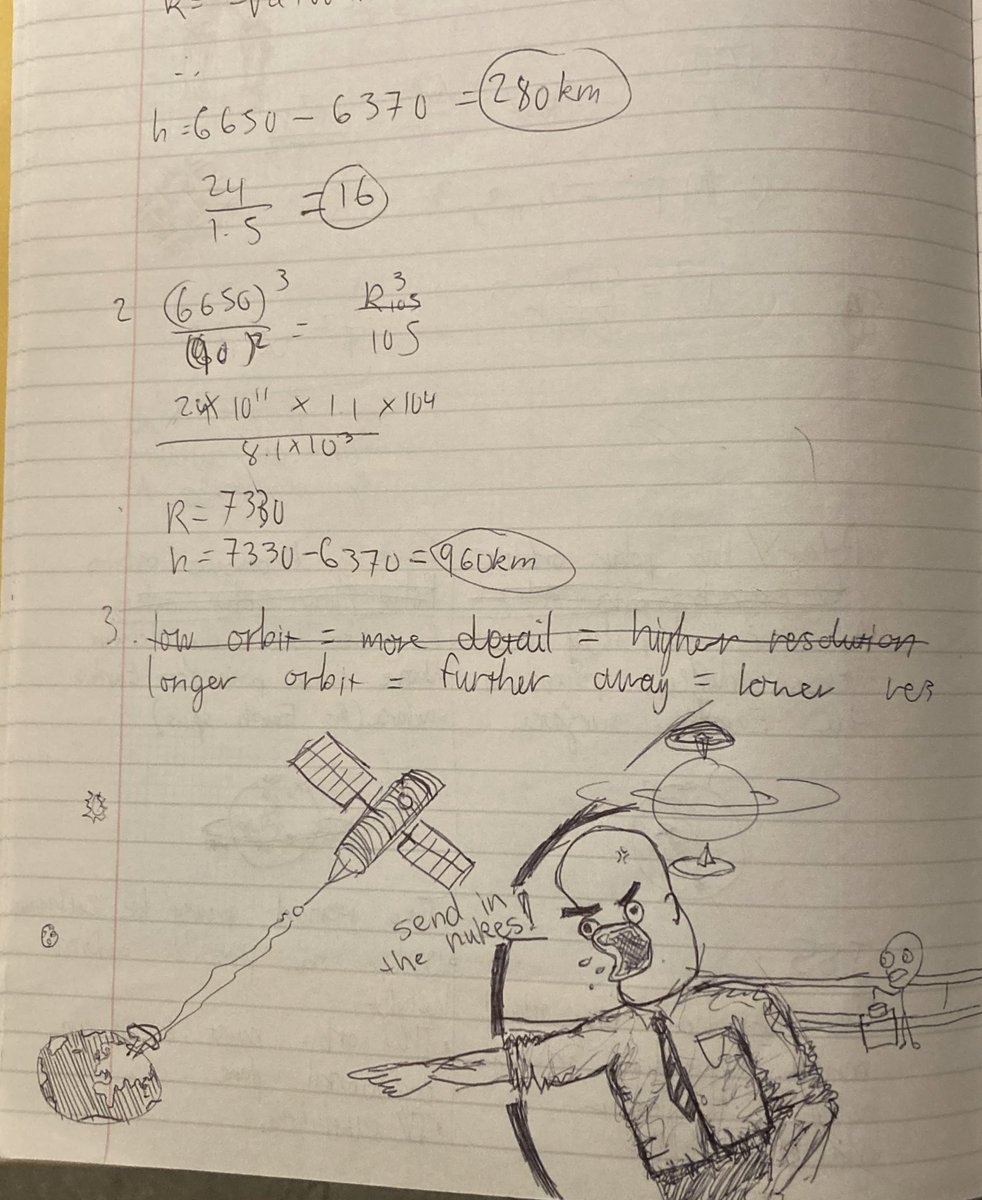 R=
∴
h=6650 - 6370 = 280km
24/1.5 = 16
2 (6650)³/(90)² = R³/105
24 x 10¹¹ x 1.1 x 104 / 8.1x10³
R= 7330
h= 7330-6370=960km
3. low orbit = more detail = higher resolution
longer orbit = further away = lower res
send in
the nukes!